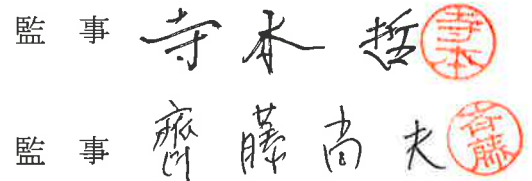 監事 寺本 哲 寺本
監事 齊藤 尚夫 斉藤